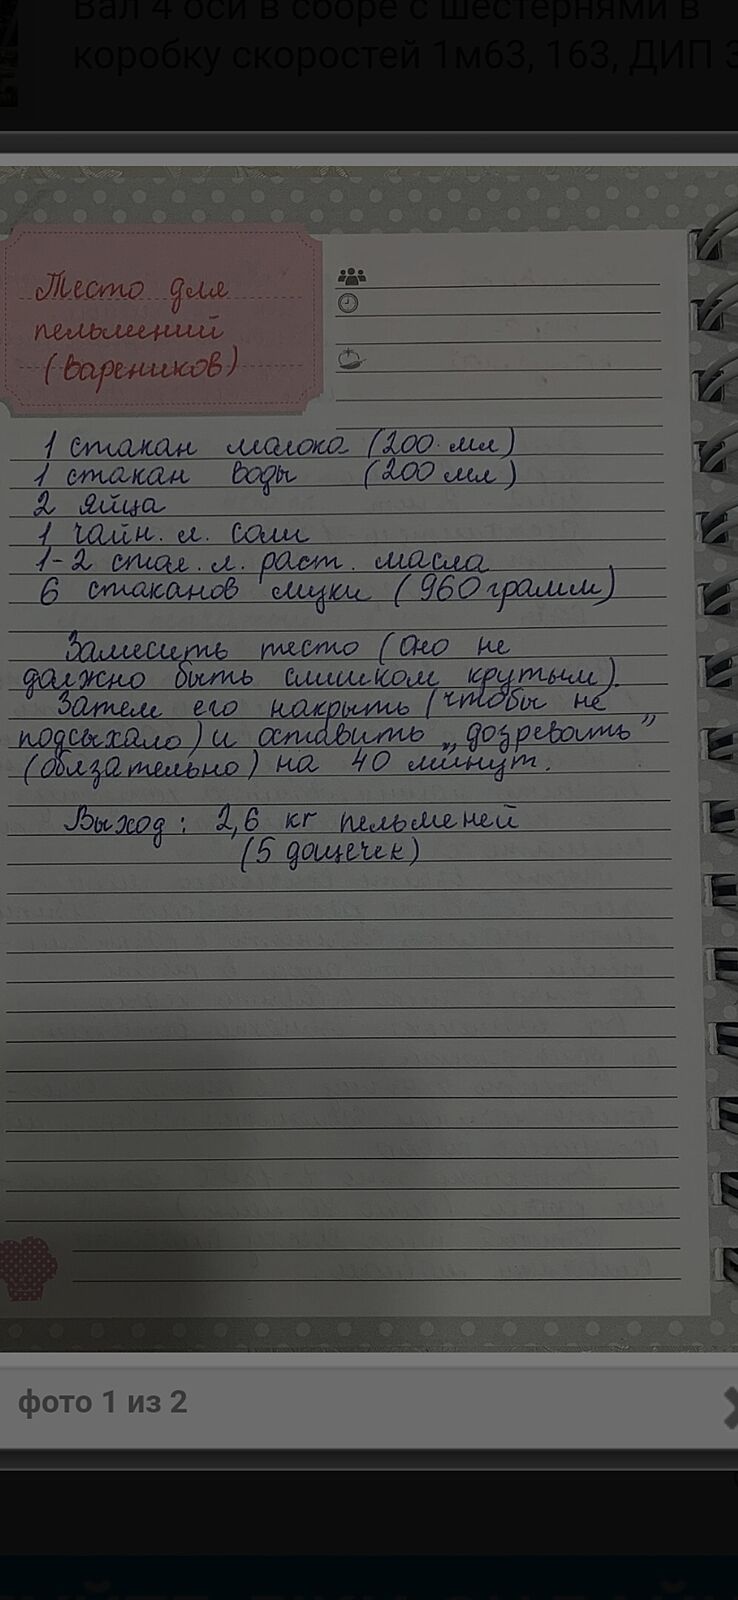 Вал 4 оси в сборе с шестернями в
коробку скоростей 1м63, 163, ДИП 3
Тесто для
пельмений
(вареников)
1 стакан молока (200 мл)
1 стакан воды (200 мл)
2 яйца
1 чайн. л. соли
1-2 стол. л. раст. масла
6 стаканов муки (960 грамм)
Замесить тесто (оно не
должно быть слишком крутым).
Затем его накрыть (чтобы не
подсыхало) и оставить „дозревать”
(обязательно) на 40 минут.
Выход: 2,6 кг пельменей
(5 дощечек)
фото 1 из 2